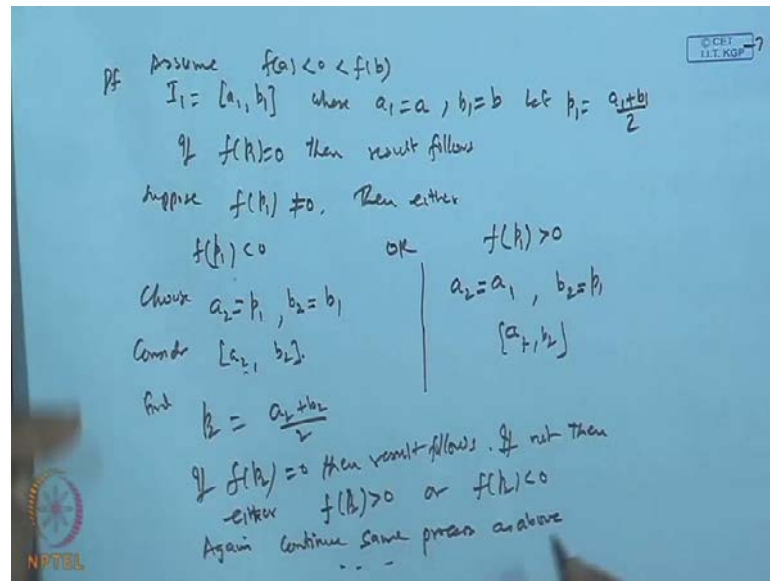 © CET
I.I.T. KGP
-7
Pf Assume f(a) < 0 < f(b)
I₁ = [a₁, b₁] where a₁ = a , b₁ = b Let p₁ = (a₁+b₁)/2
If f(p₁)=0 then result follows
Suppose f(p₁) ≠0. Then either
f(p₁) < 0 OR f(p₁) > 0
Choose a₂ = p₁ , b₂ = b₁ a₂ = a₁ , b₂ = p₁
Consider [a₂, b₂]. [a₂, b₂]
Find p₂ = (a₂+b₂)/2
If f(p₂) = 0 then result follows. If not then
either f(p₂)>0 or f(p₂)<0
Again continue same process as above
. . -
NPTEL